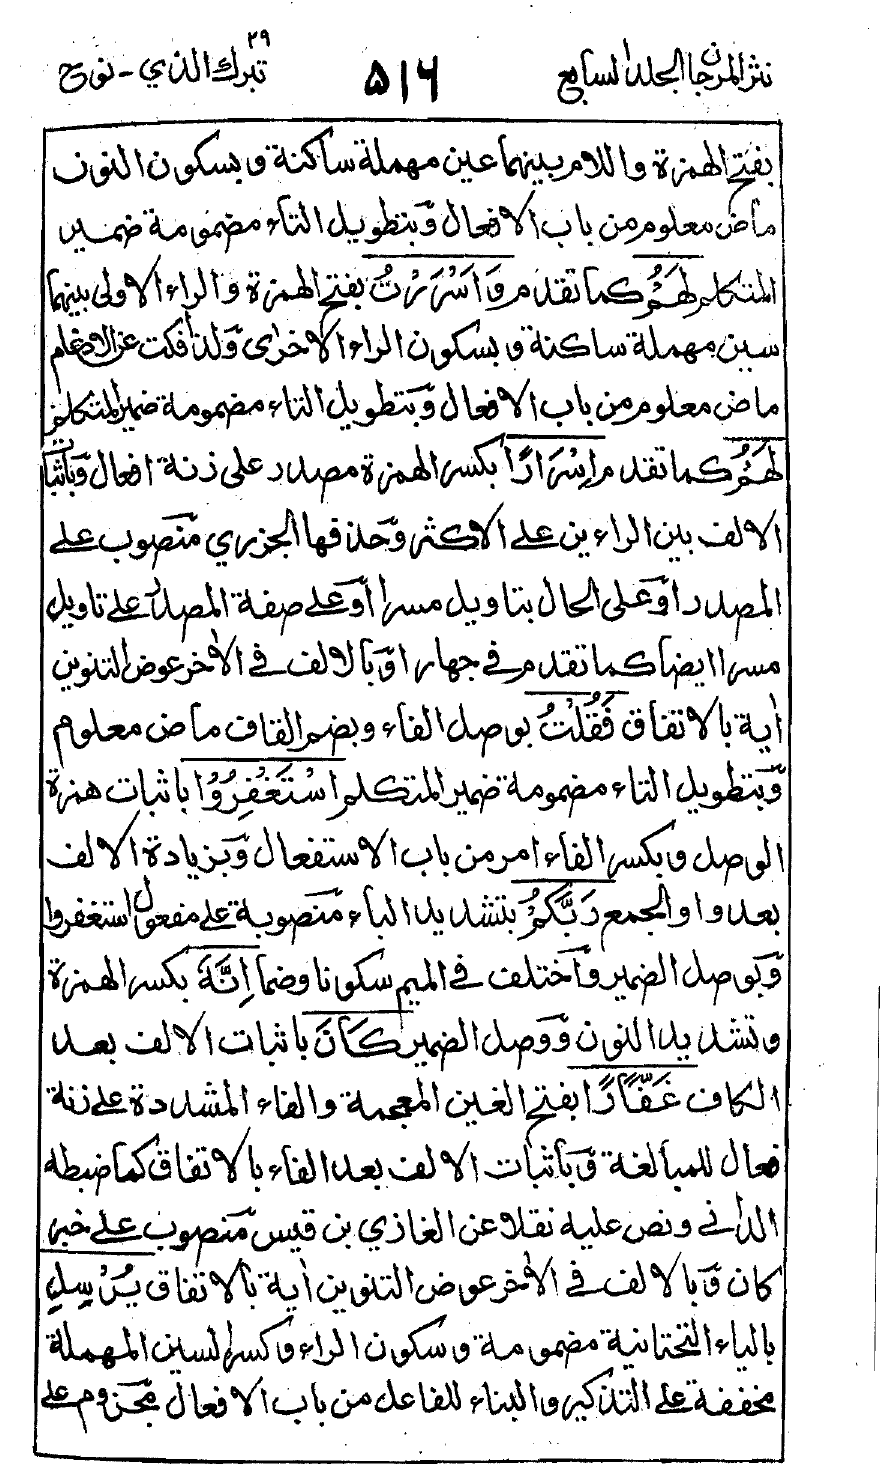 نثر المرجان الجلد السابع ۵۱۶ تبرك الذي ۲۹ - نوح
بفتح الهمزة واللام بينهما عين مهملة ساكنة وبسكون النون
ماض معلوم من باب الافعال وبتطويل التاء مضمومة ضمير
المتكلم لَهُمْ كما تقدم وَاَسْرَرْتُ بفتح الهمزة والراء الاولى بينهما
سين مهملة ساكنة وبسكون الراء الاخرى ولذا فكت عن الادغام
ماض معلوم من باب الافعال وبتطويل التاء مضمومة ضمير المتكلم
لَهُمْ كما تقدم اِسْرَارًا بكسر الهمزة مصدر على زنة افعال وباثبات
الالف بين الراءين على الاكثر وحذفها الجزري منصوب على
المصدر او على الحال بتاويل مسرا او على صفة المصدر على تاويل
مسرا ايضا كما تقدم في جهارا وبالالف في الاخر عوض التنوين
اية بالاتفاق فَقُلْتُ بوصل الفاء وبضم القاف ماض معلوم
وبتطويل التاء مضمومة ضمير المتكلم اسْتَغْفِرُوْا باثبات همزة
الوصل وبكسر الفاء امر من باب الاستفعال وبزيادة الالف
بعد واو الجمع رَبَّكُمْ بتشديد الباء منصوبة على مفعول استغفروا
وبوصل الضمير واختلف في الميم سكونا وضما اِنَّهٗ بكسر الهمزة
وتشديد النون ووصل الضمير كَانَ باثبات الالف بعد
الكاف غَفَّارًا بفتح الغين المعجمة والفاء المشددة على زنة
فعال للمبالغة وباثبات الالف بعد الفاء بالاتفاق كما ضبطه
الداني ونص عليه نقلا عن الغازي بن قيس منصوب على خبر
كان وبالالف في الاخر عوض التنوين اية بالاتفاق يُرْسِلِ
بالياء التحتانية مضمومة وسكون الراء وكسر السين المهملة
مخففة على التذكير والبناء للفاعل من باب الافعال مجزوم على